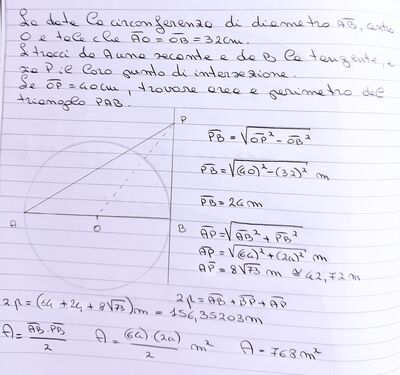 Sia data la circonferenza di diametro AB, centro
O e tale che AO = OB = 32cm.
Si tracci da A una secante e da B la tangente, e
sia P il loro punto di intersezione.
Se OP = 40cm, trovare area e perimetro del
triangolo PAB.
P
PB = √OP² - OB²
PB = √(40)² - (32)² m
PB = 24 m
A
O
B
AP = √AB² + PB²
AP = √(64)² + (24)² m
AP = 8√73 m ≅ 42,72 m
2p = (64 + 24 + 8√73) m = 156,35203 m
2p = AB + BP + AP
A = AB · PB / 2
A = (64) · (24) / 2 m²
A = 768 m²